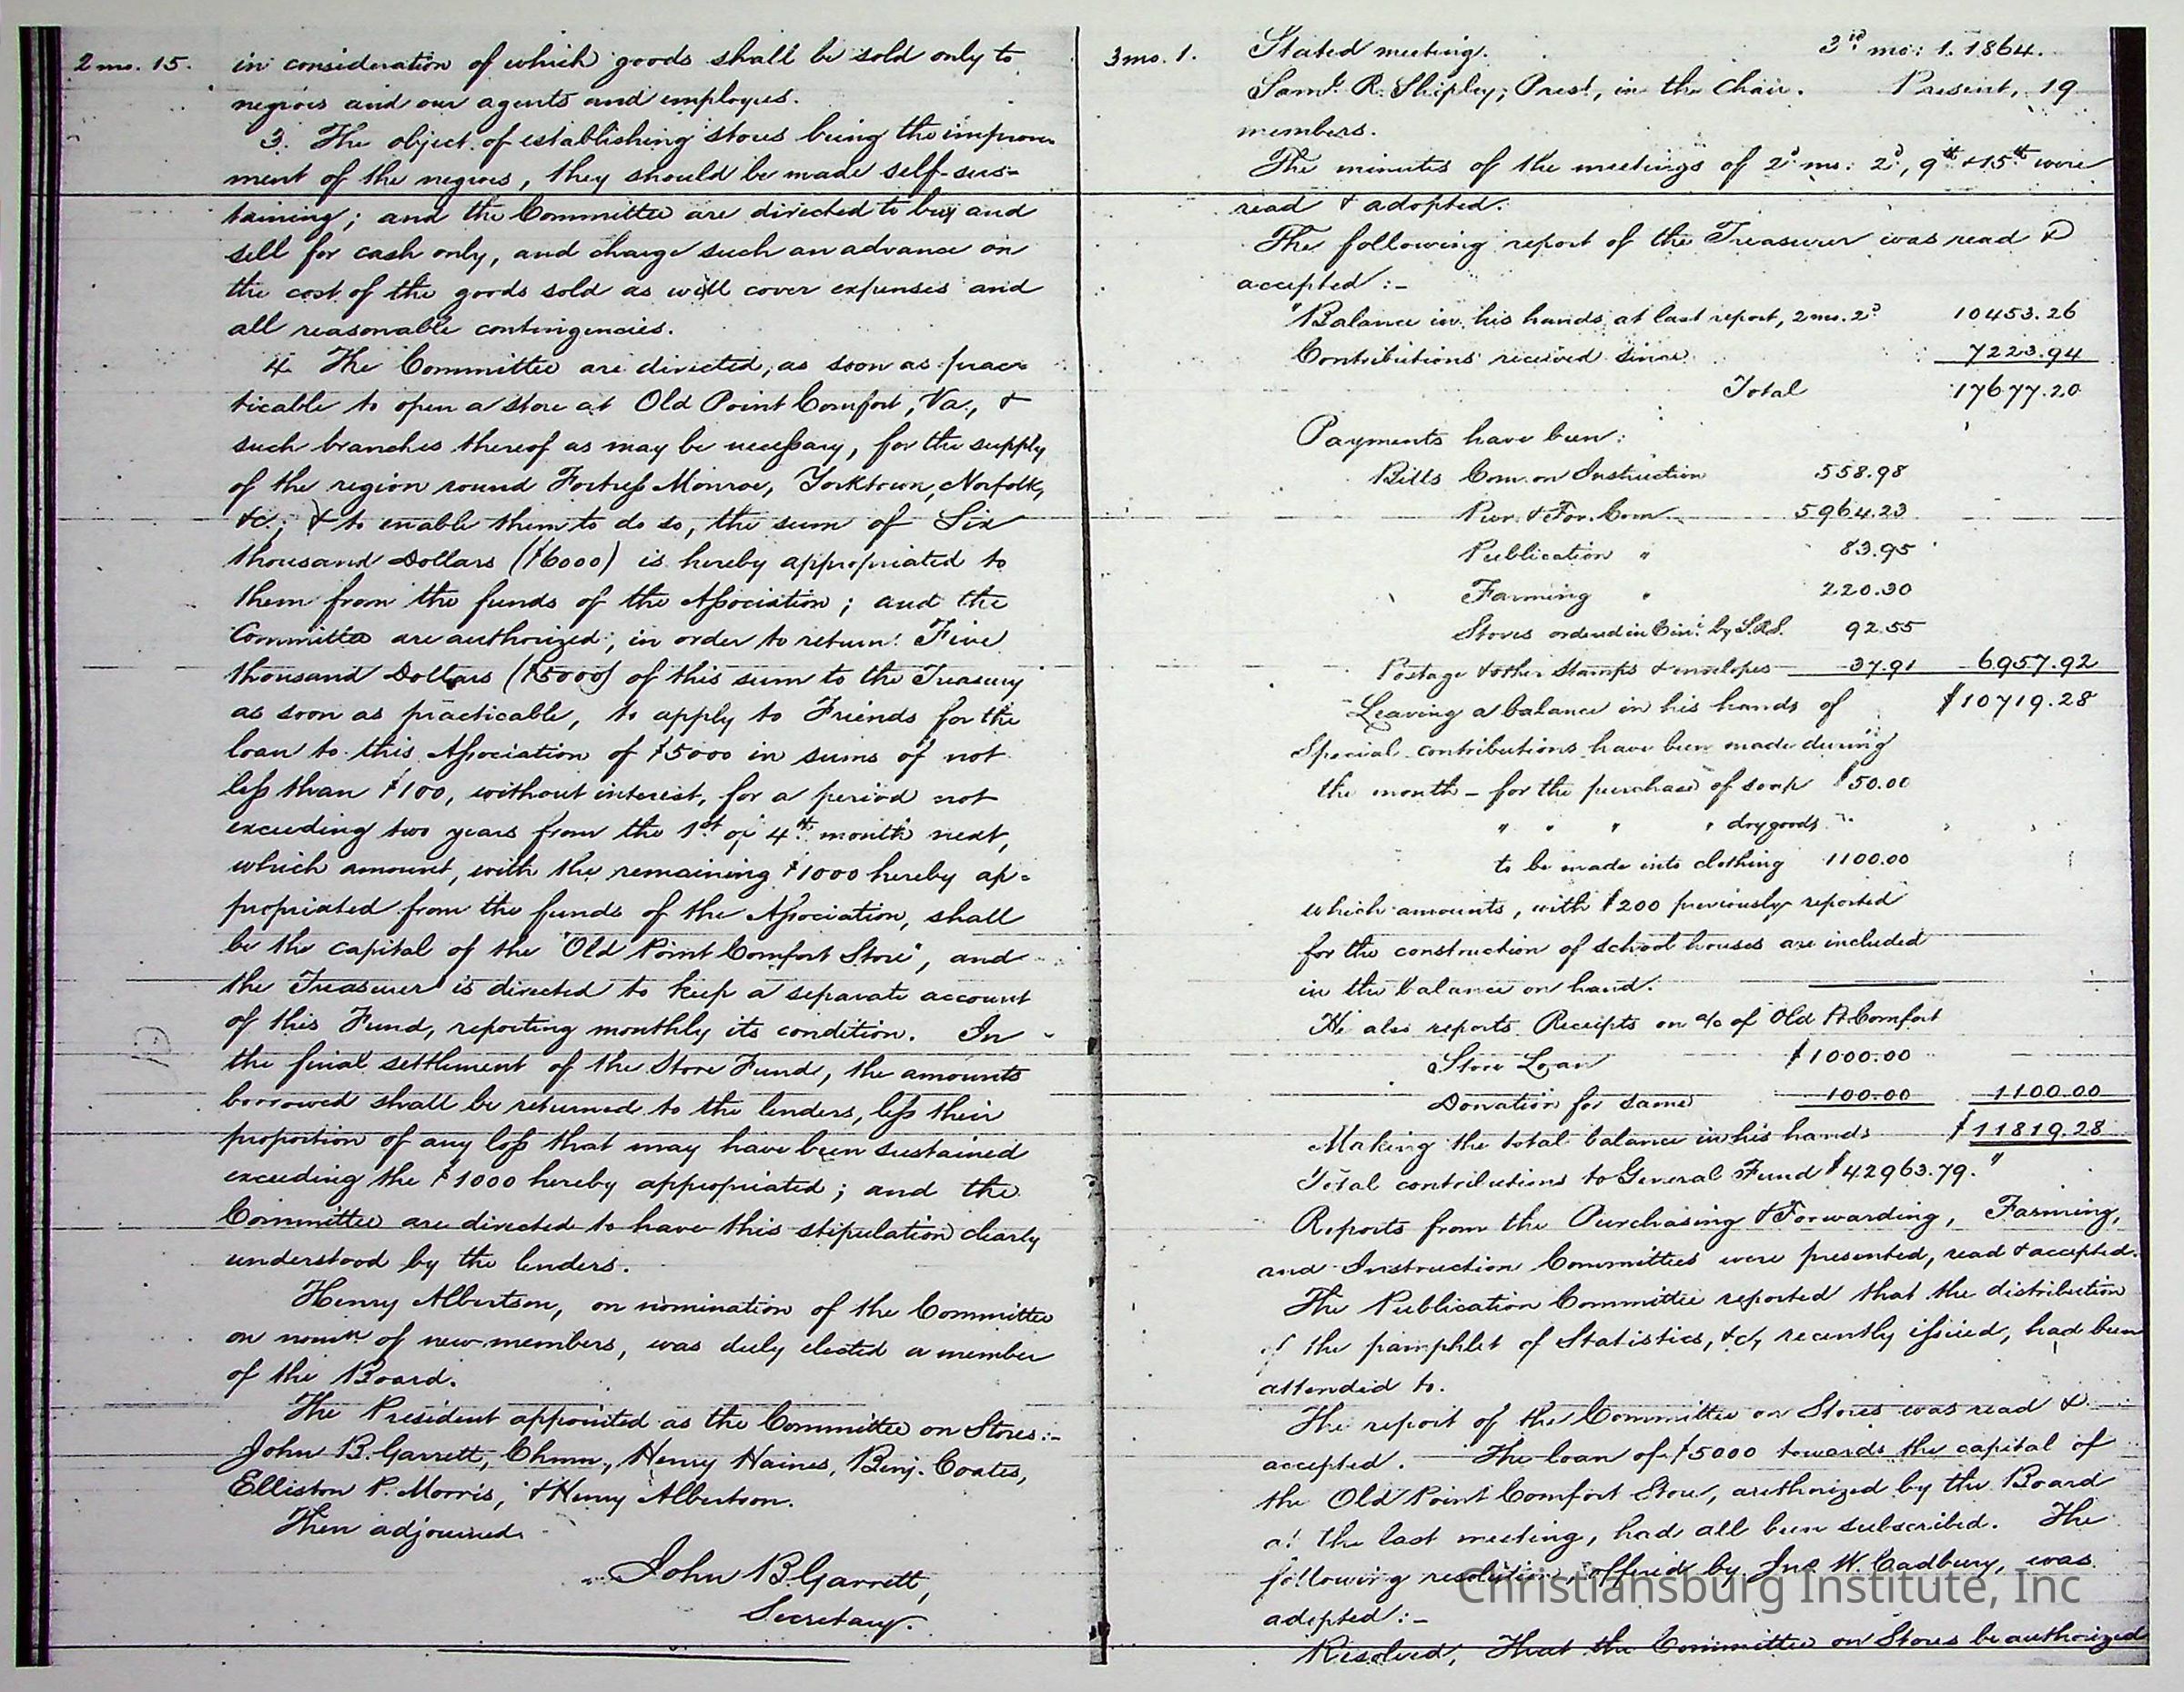 2 mo. 15.
in consideration of which goods shall be sold only to
negroes and our agents and employees.
3. The object of establishing stores being the improve-
ment of the negroes, they should be made self-sus=
taining; and the Committee are directed to buy and
sell for cash only, and charge such an advance on
the cost of the goods sold as will cover expenses and
all reasonable contingencies.
4. The Committee are directed, as soon as prac-
ticable to open a store at Old Point Comfort, Va., &
such branches thereof as may be necessary, for the supply
of the region round Fortress Monroe, Yorktown, Norfolk,
&c.; & to enable them to do so, the sum of Six
thousand Dollars ($6000) is hereby appropriated to
them from the funds of the Association; and the
Committee are authorized, in order to return Five
thousand Dollars ($5000) of this sum to the Treasury
as soon as practicable, to apply to Friends for the
loan to this Association of $5000 in sums of not
less than $100, without interest, for a period not
exceeding two years from the 1st of 4th month next,
which amount, with the remaining $1000 hereby ap=
propriated from the funds of the Association, shall
be the capital of the "Old Point Comfort Store", and
the Treasurer is directed to keep a separate account
of this Fund, reporting monthly its condition. In
the final settlement of the Store Fund, the amounts
borrowed shall be returned to the lenders, less their
proportion of any loss that may have been sustained
exceeding the $1000 hereby appropriated; and the
Committee are directed to have this stipulation clearly
understood by the lenders.
Henry Albertson, on nomination of the Committee
on nomn of new members, was duly elected a member
of the Board.
The President appointed as the Committee on Stores:-
John B. Garrett, Chmn., Henry Haines, Benj. Coates,
Elliston P. Morris, & Henry Albertson.
Then adjourned.
John B. Garrett,
Secretary.
3 mo. 1.
Stated meeting. 3rd mo: 1. 1864.
Saml. R. Shipley, Prest, in the Chair. Present, 19
members.
The minutes of the meetings of 2d mo: 2d, 9th & 15th were
read & adopted.
The following report of the Treasurer was read &
accepted:-
"Balance in his hands at last report, 2 mo. 2d 10453.26
Contributions received since 7223.94
Total 17677.20
Payments have been:
Bills Com. on Instruction 558.98
Pur. & For. Com 5964.23
Publication " 83.95
Farming " 220.30
Stores ordered in Cin. by S.R.S. 92.55
Postage & other Stamps & envelopes 37.91 6957.92
Leaving a balance in his hands of $10719.28
Special contributions have been made during
the month - for the purchase of soap $50.00
" " " " dry goods
to be made into clothing 1100.00
which amounts, with $200 previously reported
for the construction of school houses are included
in the balance on hand.
He also reports Receipts on a/c of Old Pt Comfort
Store Loan $1000.00
Donation for same 100.00 1100.00
Making the total balance in his hands $11819.28
Total contributions to General Fund $42963.79."
Reports from the Purchasing & Forwarding, Farming,
and Instruction Committees were presented, read & accepted.
The Publication Committee reported that the distribution
of the pamphlet of Statistics, &c, recently issued, had been
attended to.
The report of the Committee on Stores was read &
accepted. The loan of $5000 towards the capital of
the Old Point Comfort Store, authorized by the Board
at the last meeting, had all been subscribed. The
following resolution, offered by Jno. W. Cadbury, was
adopted:-
Resolved, That the Committee on Stores be authorized
Christiansburg Institute, Inc